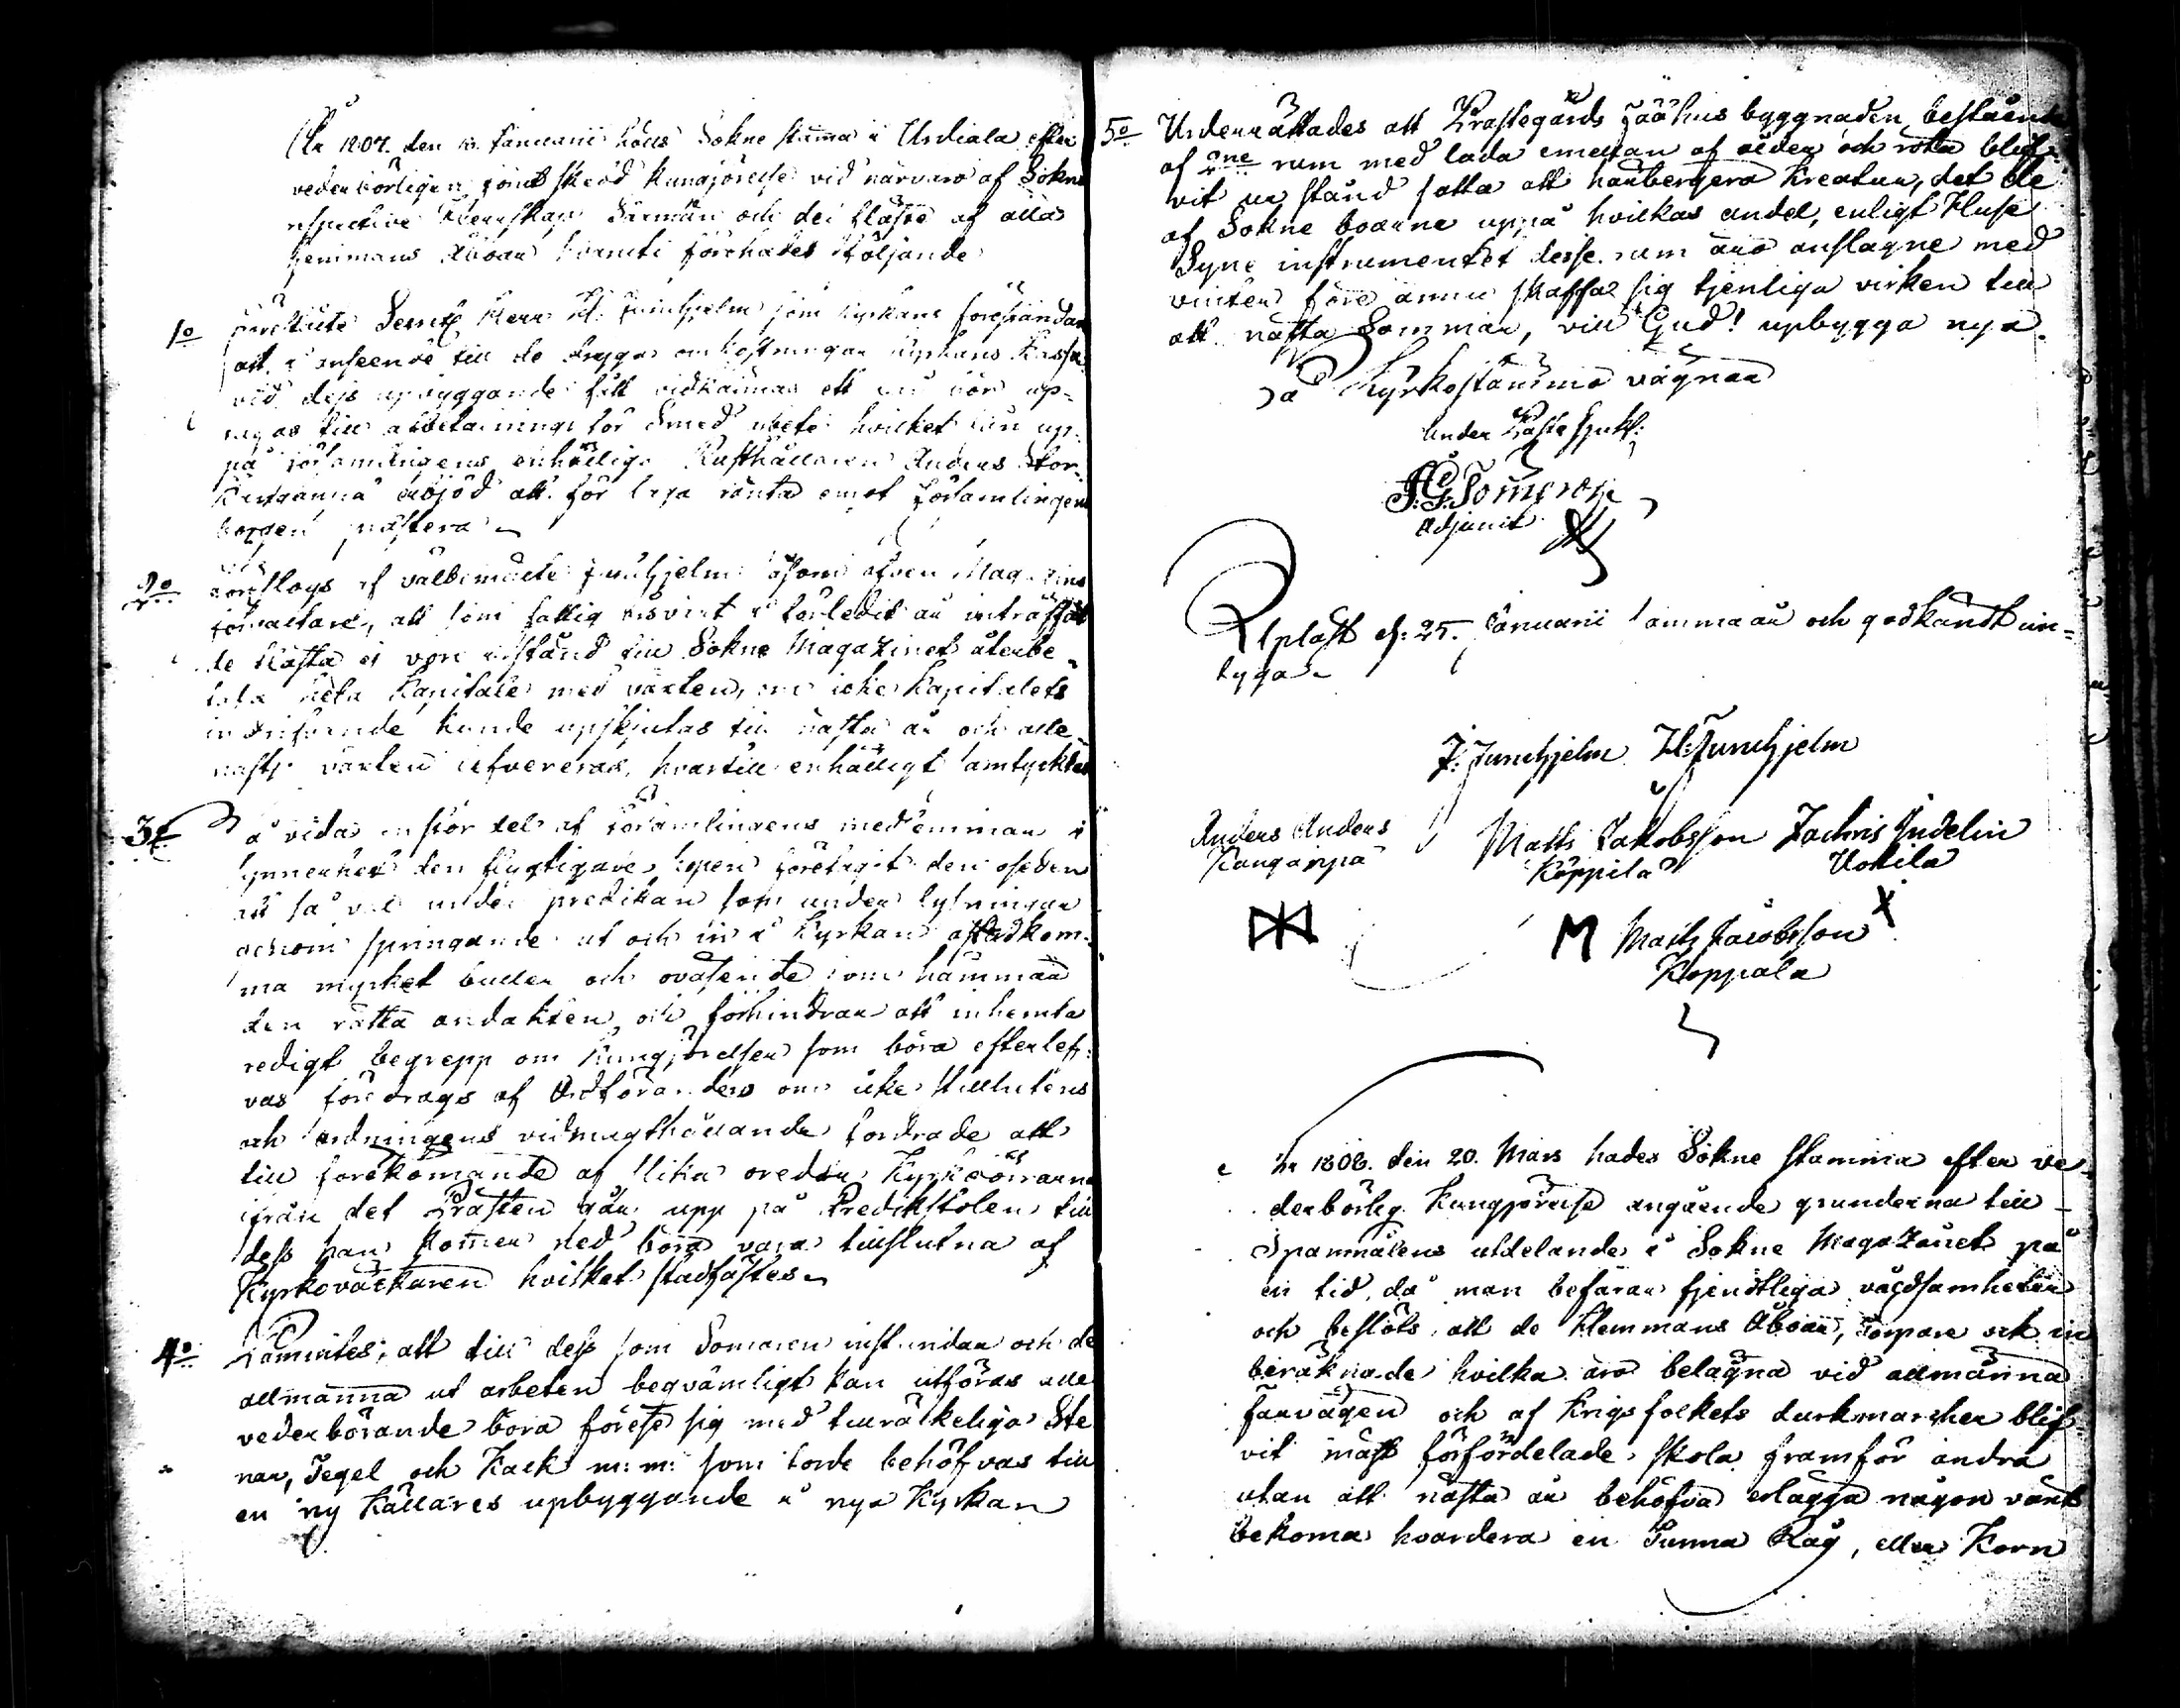 År 1807. den 18. Januarii hölls Sokne stämma i Urdiala efter
vederbörligen förut skedd kungörelse vid närvaro af Sokne
respective Herrskap Särmän och de fläste af alla
hemmans Åboar hvarvid förehades följande
1o Herr H. Junehjelm som kyrkans föreståndare
att i anseende till de dryga omkostningar kyrkans Kassa
vid dess upbyggande fått vidkännas ett lån bör up-
tagas till afbetalninge för Smeds arbete hvilket lån up-
på församlingens enhälliga Rusthållaren Anders Stor-
Kanganpä erbjöd att för laga ränta emot församlingens
borgen prästera
2o föreslogs af välbemälte Junehjelm såsom äfven Magazins
förvaltare, att som fattig årsväxt i förledit år inträffat
de fläste ej voro i stånd till Sokne Magazinet återbe-
tala hela Kapitalet med växten, om icke Kapitalets
indrifvande kunde upskjutas till nästa år och alle-
nast växten lefvereras, hvartill enhälligt samtycktes
3o Så vida en stor del af församlingens medlemmar i
synnerhet den flygtigare hopen företagit den oseden
att så väl under predikan som under lysningar
genom springande ut och in i Kyrkan åstadkom-
ma mycket buller och oväsende som hämmar
den rätta andakten och förhindrar att inhemta
redigt begrepp om kungörelser som böra efterlef-
vas föredrogs af Ordföranden om icke Stillhetens
och ordningens vidmagthållande fordrade att
till förekommande af slika oredor Kyrkodörrarne
ifrån det Prästen går upp på Predikstolen till
dess han kommer ned böra vara tillslutna af
Kyrkoväcktaren hvilket stadfästes
4o Påmintes, att till dess som Sommaren instundar och de
allmänna ut arbeten beqvämligt kan utföras alle
vederbörande böra förese sig med tillräckeliga Ste-
nar, Tegel och Kalk m: m: som torde behöfvas till
en ny Källares upbyggande i nya Kyrkan
5o Underrättades att Prästegårds Fäähus byggnaden bestående
af 2ne rum med lada emellan af ålder och röta blif-
vit ur stånd satta att härbergera Kreatur, det de
af Sokne boarne uppå hvilkas andel, enligt Huse
Syne instrumentet desse rum äro anslagne med
vinter före ännu skaffa sig tjenliga virken till
att nästa Sommar, vill Gud! upbygga nya.
På Kyrkostämmo vägnar
under Pasto Sjukl:
Adjunct
Upläst d: 25. Januarii samma år och godkändt in-
tyga
J: Junehjelm H: Junehjelm
Anders Anders Matts Jakobsson Zachris Indelin
Kanganpä Käppilä Uotila
M Matts Jacobsson
Koppala
År 1808. den 20. Mars hades Sokne stämma efter ve-
derbörlig Kungörelse angående grunderna till
Spanmålens utdelande i Sokne Magazinet på
en tid, då man befarar fjendtliga våldsamheter
och beslöts, att de Hemmans Åboar, Torpare ock in
beräknade hvilka äro belägna vid allmänna
farvägen och af Krigsfolkets durkmarcher blif-
vit mäst förfördelade skola framför andra
utan att nästa år behöfva erlägga någon växt
bekoma hvardera en Tunna Råg, eller Korn